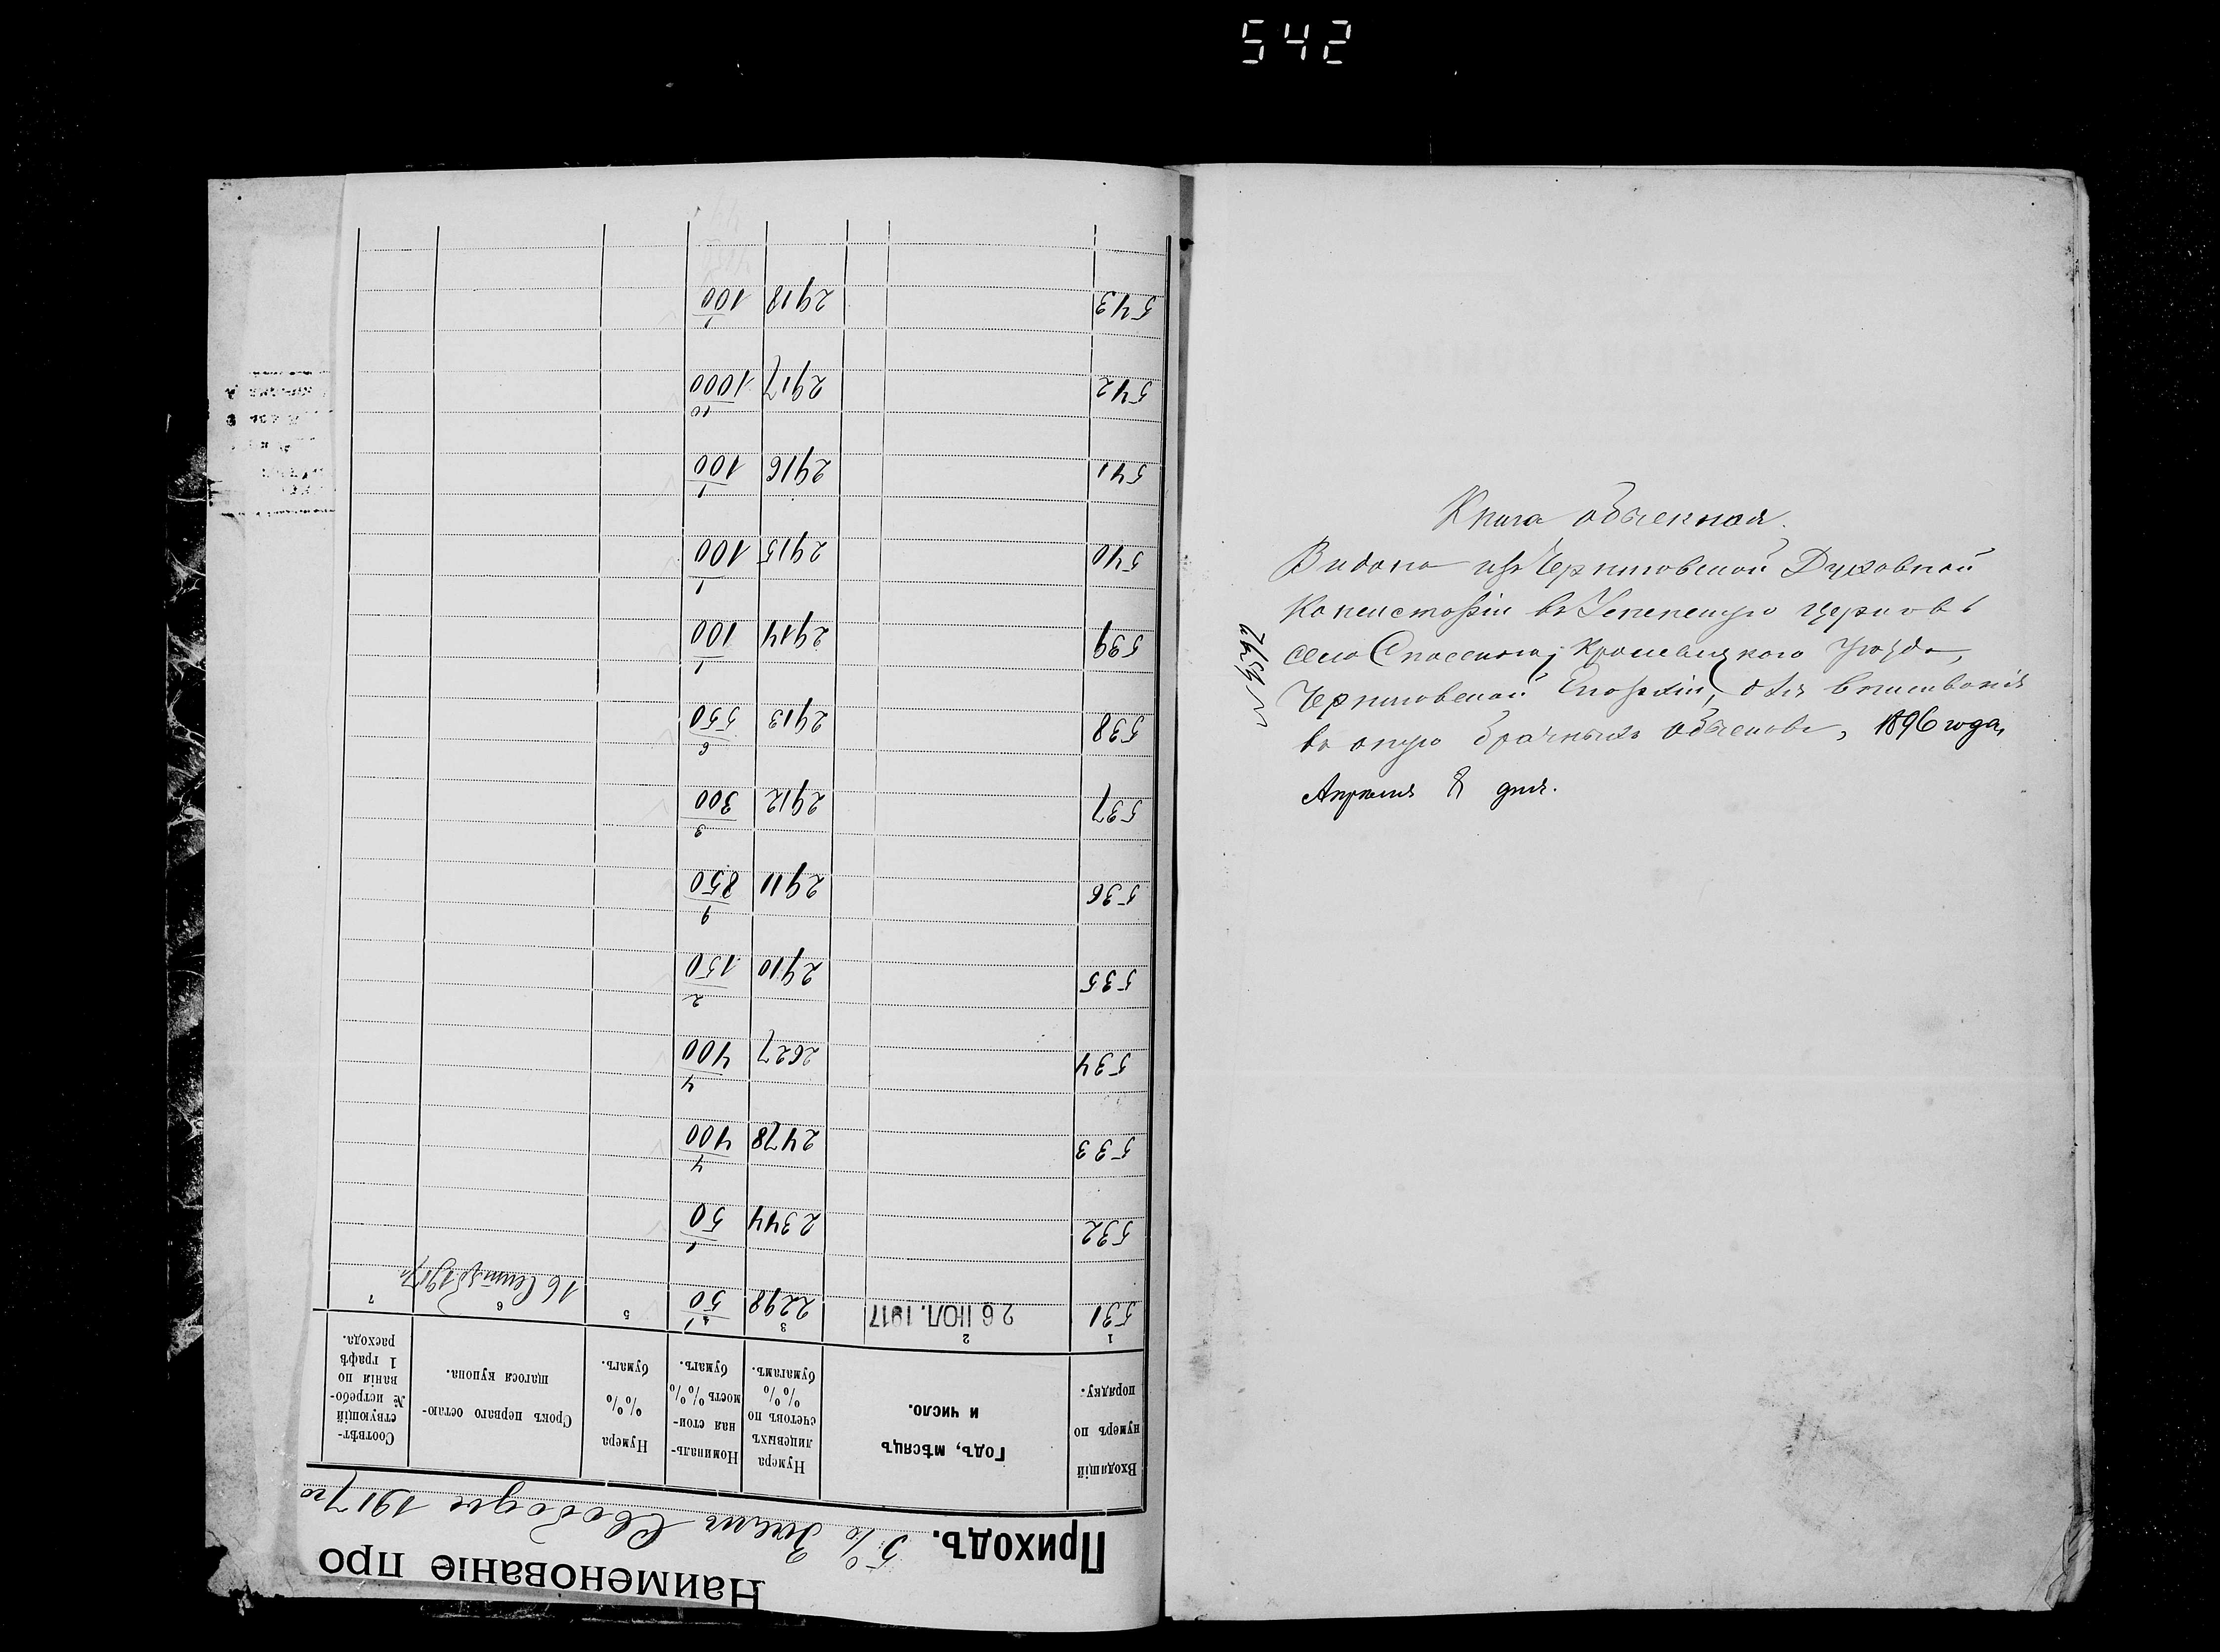 542
Книга обыскная.
Видана изъ Черниговской Духовной
Консисторіи въ Успенскую церковь
села Спасскаго, Кролевецкаго Уѣзда,
Черниговской Епархіи, для вписиванія
въ оную брачныхъ обысковъ, 1896 года,
Апрѣля 8 дня.
Наименованіе про
Приходъ. 5% Заемъ Свободы 1917 го
Входящій нумеръ по порядку.
Годъ, мѣсяцъ и число.
Нумера лицевыхъ счетовъ по %% бумагамъ.
Номинальная стоимость %% бумагъ.
Нумера %% бумагъ.
Срокъ перваго остающагося купона.
Соотвѣтствующій № истребованія по 1 графѣ расхода.
1 2 3 4 5 6 7
531 26 ІЮЛ. 1917 2298 1/50 16 Сентяб 1917 г
532 2344 1/50
533 2478 4/400
534 2627 4/400
535 2910 2/150
536 2911 9/850
537 2912 3/300
538 2913 6/550
539 2914 1/100
540 2915 1/100
541 2916 1/100
542 2917 10/1000
543 2918 1/100